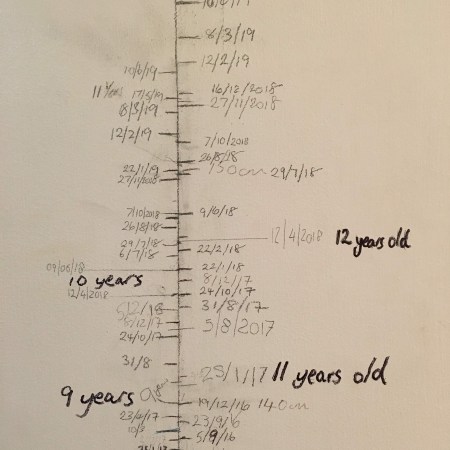 8/3/19
12/2/19
10/6/19
11 Yrs 17/5/19
16/12/2018
27/11/2018
8/3/19
12/2/19
7/10/2018
26/8/18
22/1/19
150cm 29/7/18
27/11/2018
7/10/2018
9/6/18
26/8/18
12/4/2018 12 years old
29/7/18
22/2/18
6/7/18
09/06/18
22/1/18
10 years
8/12/17
12/4/2018
24/10/17
5/2/18
31/8/17
8/12/17
5/8/2017
24/10/17
31/8
25/1/17 11 years old
9 years
19/12/16 140cm
23/4/17
23/9/16
5/9/16